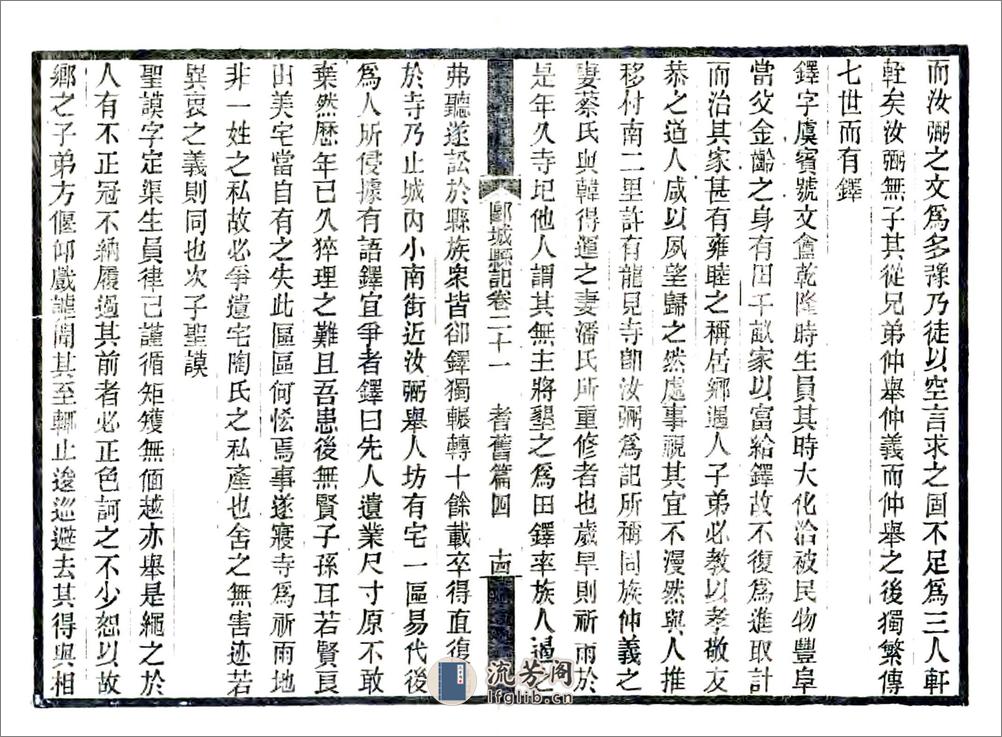 而汝弼之文爲多豫乃徒以空言求之固不足爲三人軒
輊矣汝弼無子其從兄弟仲舉仲義而仲舉之後獨繁傳
七世而有鐸
鐸字虞賓號文盦乾隆時生員其時大化洽被民物豐阜
當父金齡之身有田千畝家以富給鐸故不復爲進取計
而治其家甚有雍睦之稱居鄉遇人子弟必教以孝敬友
恭之道人咸以夙望歸之然處事視其宜不漫然與人推
移付南二里許有龍見寺卽汝弼爲記所稱同族仲義之
妻蔡氏與韓得運之妻潘氏所重修者也歲旱則祈雨於
是年久寺圮他人謂其無主將墾之爲田鐸率族人過之
郾城縣記卷二十一 耆舊篇四 十四
弗聽遂訟於縣族衆皆卻鐸獨輾轉十餘載卒得直復
於寺乃止城內小南街近汝弼舉人坊有宅一區易代後
爲人所侵據有語鐸宜爭者鐸曰先人遺業尺寸原不敢
棄然歷年已久猝理之難且吾患後無賢子孫耳若賢良
田美宅當自有之失此區區何恡焉事遂寢寺爲祈雨地
非一姓之私故必爭遺宅陶氏之私產也舍之無害迹若
異衷之義則同也次子聖謨
聖謨字定渠生員律己謹循矩矱無偭越亦舉是繩之於
人有不正冠不納履過其前者必正色訶之不少恕以故
鄉之子弟方偃仰戲謔聞其至輒止逡巡避去其得與相
流芳阁
lfglib.cn